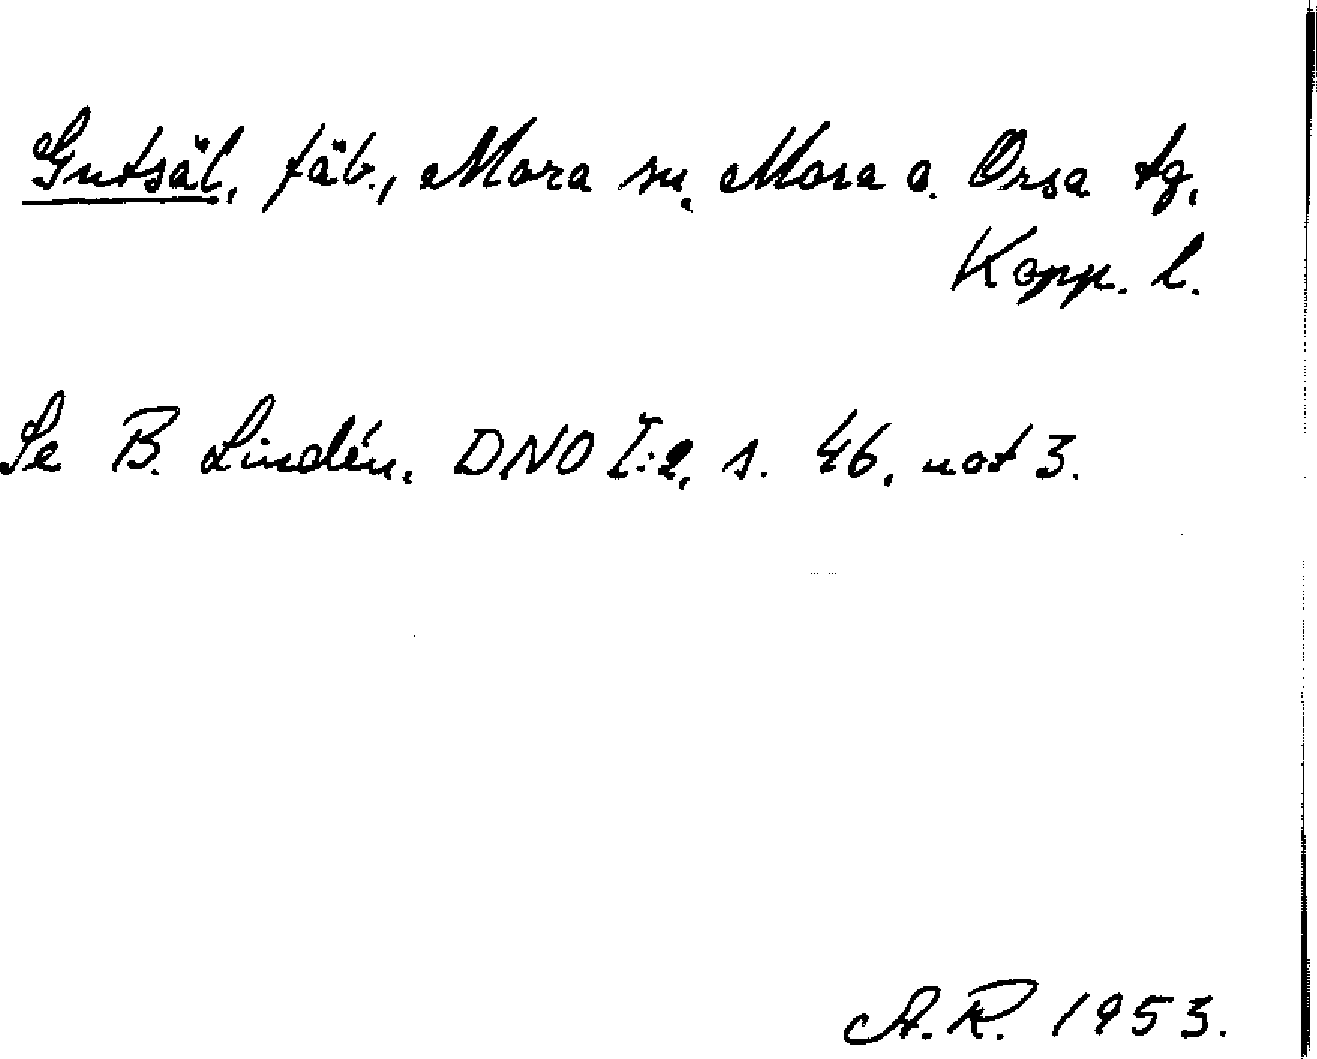 Gutsäl, fäb., Mora sn, Mora o. Orsa tg,
Kopp. l.
Se B. Lindén, DNO I:2, s. 46, not 3.
A.R. 1953.